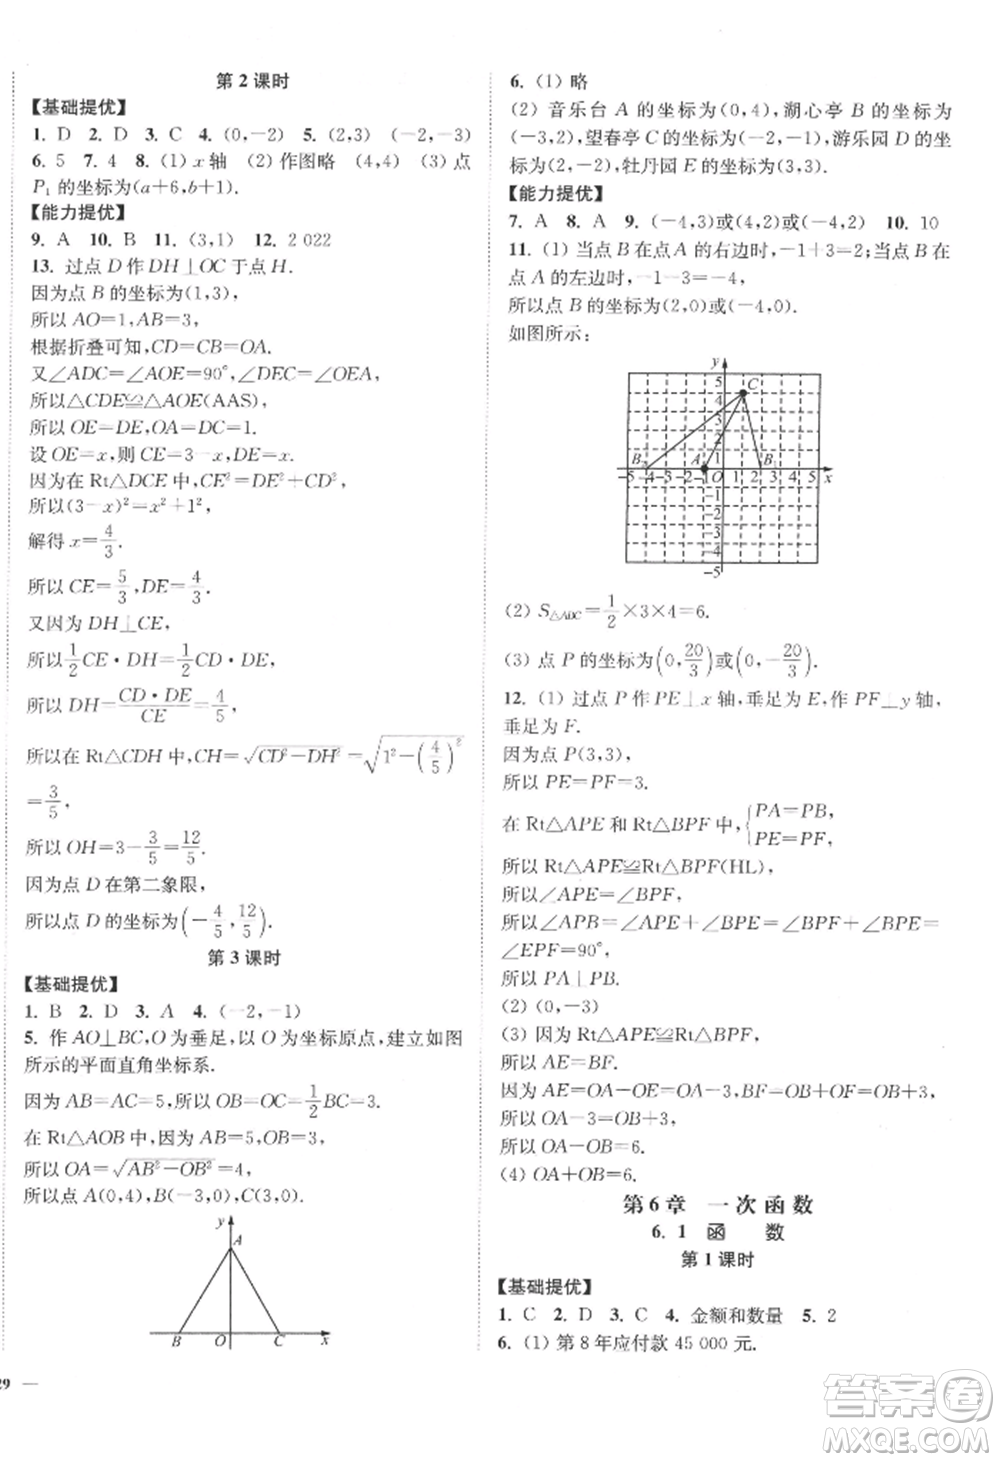 第2课时
【基础提优】
1. D 2. D 3. C 4. (0,-2) 5. (2,3) (-2,-3)
6. 5 7. 4 8. (1) x轴 (2) 作图略 (4,4) (3) 点
P₁的坐标为(a+6,b+1).
【能力提优】
9. A 10. B 11. (3,1) 12. 2 022
13. 过点D作DH⊥OC于点H.
因为点B的坐标为(1,3),
所以AO=1,AB=3,
根据折叠可知,CD=CB=OA.
又∠ADC=∠AOE=90°,∠DEC=∠OEA,
所以△CDE≌△AOE(AAS)
所以OE=DE,OA=DC=1.
设OE=x,则CE=3-x,DE=x.
因为在Rt△DCE中,CE²=DE²+CD²,
所以(3-x)²=x²+1²,
解得x=4/3.
所以CE=5/3,DE=4/3.
又因为DH⊥CE,
所以1/2CE·DH=1/2CD·DE,
所以DH=CD·DE/CE=4/5.
所以在Rt△CDH中,CH=√(CD²-DH²)=√(1²-(4/5)²)
=3/5,
所以OH=3-3/5=12/5.
因为点D在第二象限,
所以点D的坐标为(-4/5,12/5).
第3课时
【基础提优】
1. B 2. D 3. A 4. (-2,-1)
5. 作AO⊥BC,O为垂足,以O为坐标原点,建立如图
所示的平面直角坐标系.
因为AB=AC=5,所以OB=OC=1/2BC=3.
在Rt△AOB中,因为AB=5,OB=3,
所以OA=√(AB²-OB²)=4.
所以点A(0,4),B(-3,0),C(3,0).
y
A
B O C x
29 —
6. (1) 略
(2) 音乐台A的坐标为(0,4),湖心亭B的坐标为
(-3,2),望春亭C的坐标为(-2,-1),游乐园D的坐
标为(2,-2),牡丹园E的坐标为(3,3).
【能力提优】
7. A 8. A 9. (-4,3)或(4,2)或(-4,2) 10. 10
11. (1) 当点B在点A的右边时,-1+3=2;当点B在
点A的左边时,-1-3=-4.
所以点B的坐标为(2,0)或(-4,0).
如图所示:
y
5
4 C
3
2
B A 1 B
-5 -4 -3 -2 -1 O 1 2 3 4 5 x
-1
-2
-3
-4
-5
(2) S△ABC=1/2×3×4=6.
(3) 点P的坐标为(0,20/3)或(0,-20/3).
12. (1) 过点P作PE⊥x轴,垂足为E,作PF⊥y轴,
垂足为F.
因为点P(3,3),
所以PE=PF=3.
在Rt△APE和Rt△BPF中,{PA=PB,
PE=PF,
所以Rt△APE≌Rt△BPF(HL),
所以∠APE=∠BPF,
所以∠APB=∠APE+∠BPE=∠BPF+∠BPE=
∠EPF=90°,
所以PA⊥PB.
(2) (0,-3)
(3) 因为Rt△APE≌Rt△BPF,
所以AE=BF.
因为AE=OA-OE=OA-3,BF=OB+OF=OB+3,
所以OA-3=OB+3,
所以OA-OB=6.
(4) OA+OB=6.
第6章 一次函数
6.1 函 数
第1课时
【基础提优】
1. C 2. D 3. C 4. 金额和数量 5. 2
6. (1) 第8年应付款45 000元.
答案卷
MXQE.COM